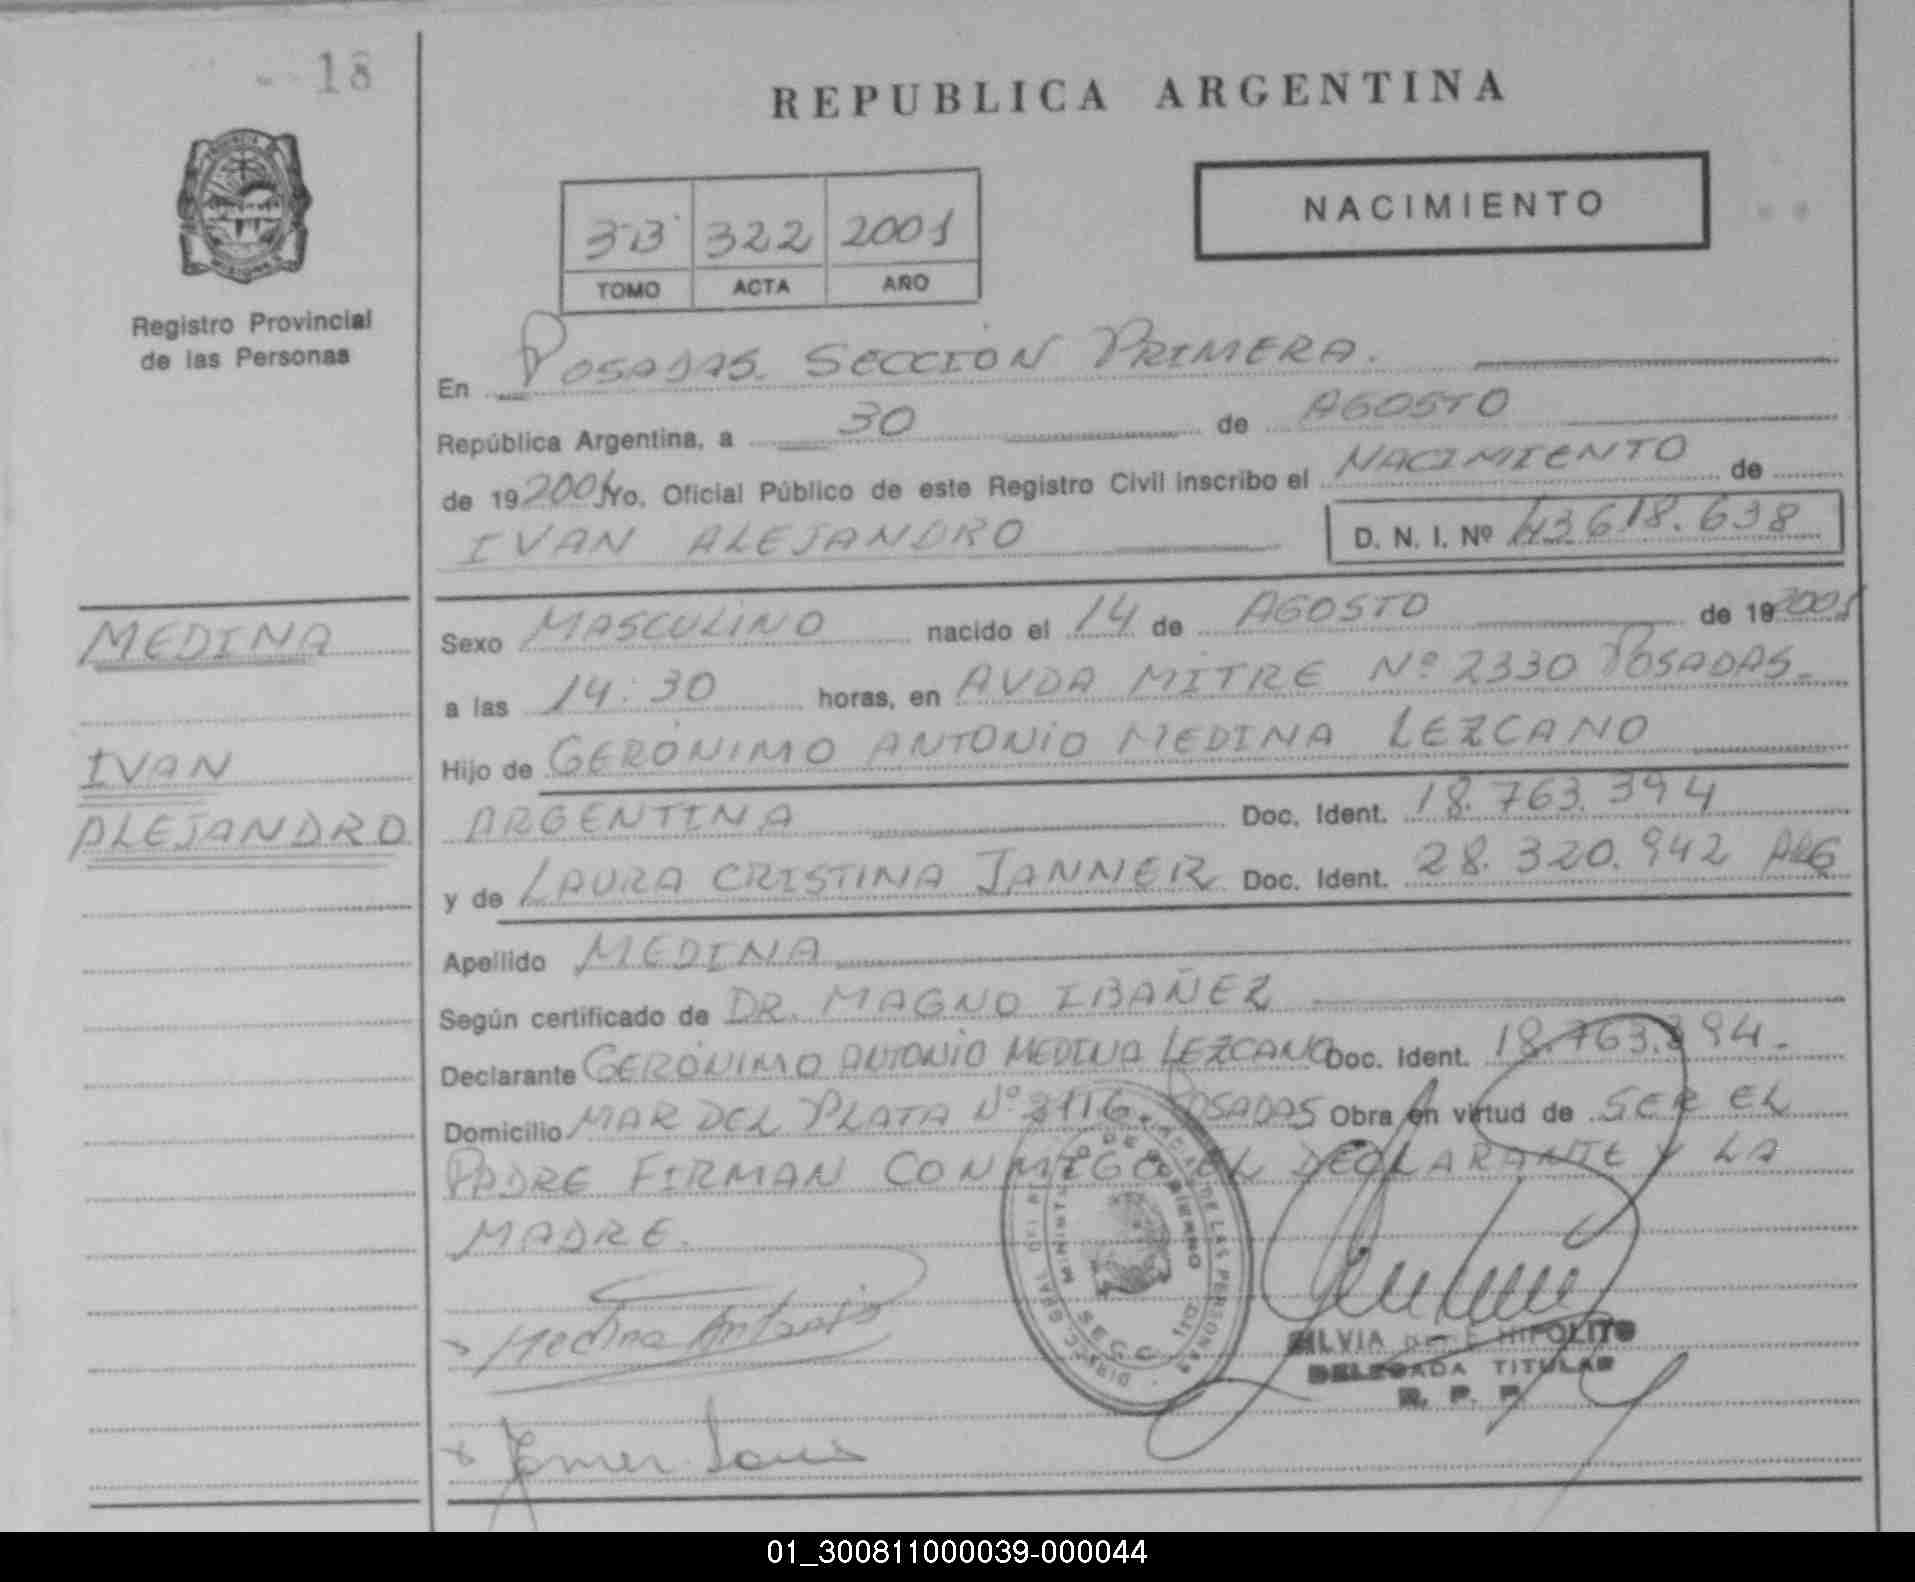 18
REPUBLICA ARGENTINA
NACIMIENTO
322 2001
TOMO ACTA AÑO
Registro Provincial
de las Personas
En POSADAS. SECCION PRIMERA.
República Argentina, a 30 de AGOSTO
de 19 2001 Yo, Oficial Público de este Registro Civil inscribo el NACIMIENTO de
IVAN ALEJANDRO D. N. I. Nº 43.618.638
MEDINA
IVAN
ALEJANDRO
Sexo MASCULINO nacido el 14 de AGOSTO de 19 2001
a las 14:30 horas, en AVDA MITRE Nº 2330 POSADAS.
Hijo de GERÓNIMO ANTONIO MEDINA LEZCANO
ARGENTINA Doc. Ident. 18.763.394
y de LAURA CRISTINA JANNER Doc. Ident. 28.320.942 ARG
Apellido MEDINA
Según certificado de DR. MAGNO IBAÑEZ
Declarante GERÓNIMO ANTONIO MEDINA LEZCANO Doc. Ident. 18.763.394.
Domicilio MAR DEL PLATA Nº POSADAS Obra en virtud de SER EL
PADRE FIRMAN CONMIGO EL DECLARANTE Y LA
MADRE.
Medina Antonio
SILVIA HIPOLITO
DELEGADA TITULAR
R. P. P.
MINIST. DE GOBIERNO
DE LAS PERSONAS
SECC.
Janner Laura
01_300811000039-000044